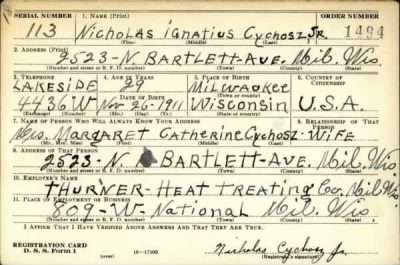 SERIAL NUMBER 1. NAME (Print) ORDER NUMBER
113 Nicholas Ignatius Cychosz Jr. 1494
(First) (Middle) (Last)
2. ADDRESS (Print)
2523-N. BARTLETT-AVE. Mil, Wis
(Number and street or R. F. D. number) (Town) (County) (State)
3. TELEPHONE 4. AGE IN YEARS 5. PLACE OF BIRTH 6. COUNTRY OF CITIZENSHIP
LAKESIDE 29 Milwaukee
DATE OF BIRTH (Town or county)
4436W Nov 26-1911 Wisconsin U.S.A.
(Exchange) (Number) (Mo.) (Day) (Yr.) (State or country)
7. NAME OF PERSON WHO WILL ALWAYS KNOW YOUR ADDRESS 8. RELATIONSHIP OF THAT PERSON
Mrs. Margaret Catherine Cychosz - Wife
(Mr., Mrs., Miss) (First) (Middle) (Last)
9. ADDRESS OF THAT PERSON
2523-N. BARTLETT-AVE. Mil, Wis
(Number and street or R. F. D. number) (Town) (County) (State)
10. EMPLOYER'S NAME
THURNER-HEAT TREATING Co. Mil Wis
11. PLACE OF EMPLOYMENT OR BUSINESS
809-W. National Mil. Wis
(Number and street or R. F. D. number) (Town) (County) (State)
I AFFIRM THAT I HAVE VERIFIED ABOVE ANSWERS AND THAT THEY ARE TRUE.
REGISTRATION CARD
D. S. S. Form 1 16-17105 Nicholas Cychosz Jr.
(Registrant's signature)